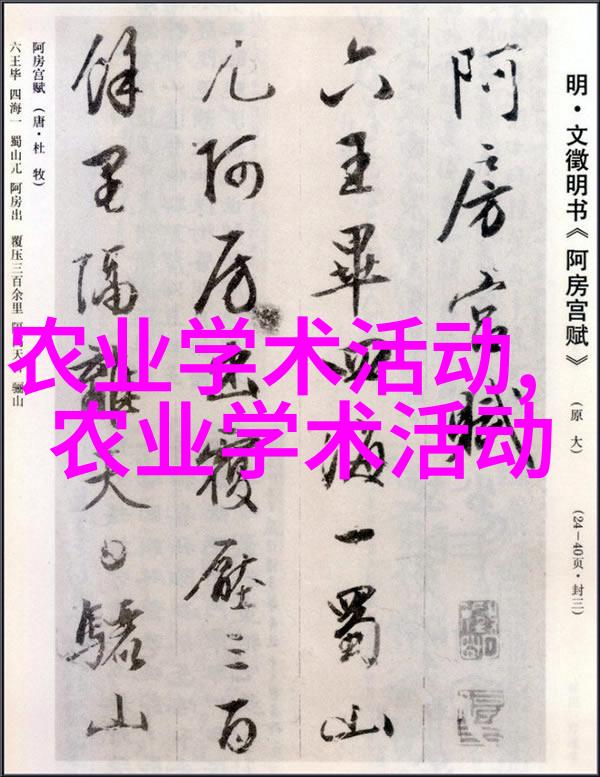 明·文徵明书《阿房宫赋》（原大）（24—40页·封三）
阿房宮賦
六王畢四海一蜀山
兀阿房出覆壓三百
餘里隔離天日驪山
阿房宫赋（唐·杜 牧）
六王毕 四海一 蜀山兀 阿房出 覆压三百余里 天 骊山
农业学术活动,
农业学术活动